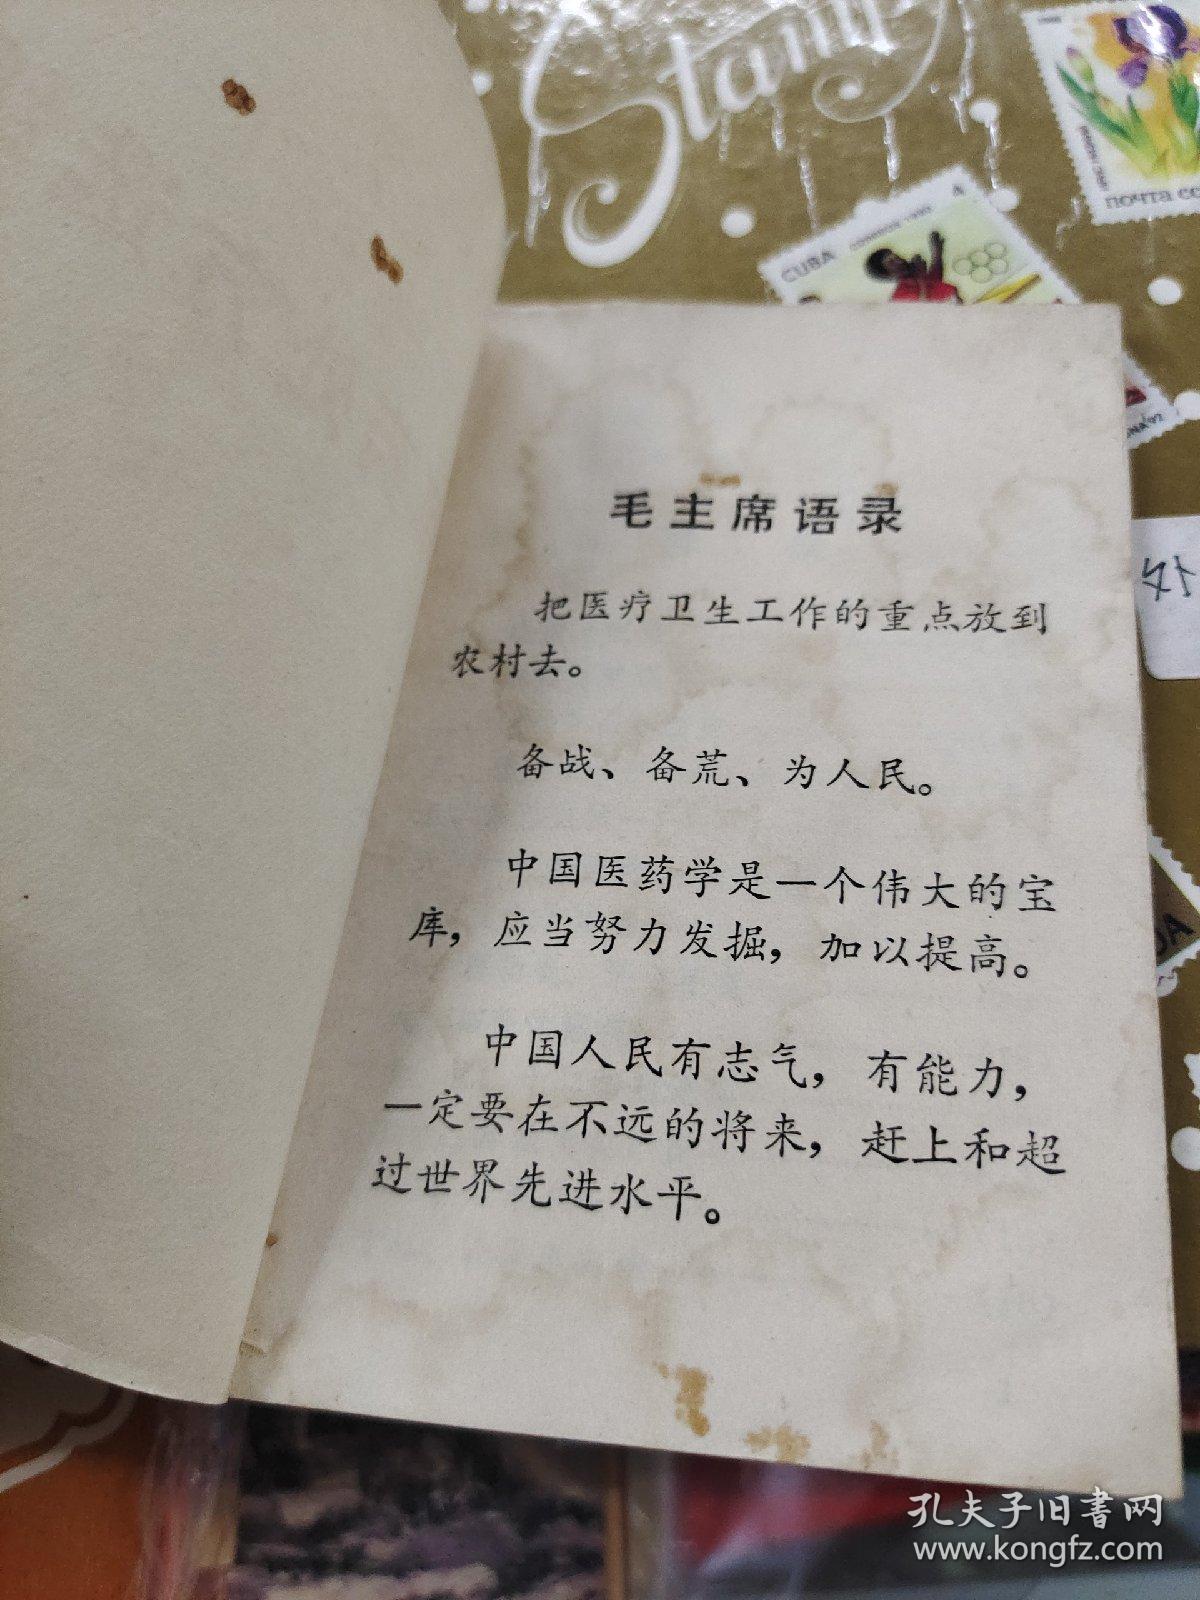 Stamp
почта сс
CUBA
毛主席语录
把医疗卫生工作的重点放到
农村去。
备战、备荒、为人民。
中国医药学是一个伟大的宝
库，应当努力发掘，加以提高。
中国人民有志气，有能力，
一定要在不远的将来，赶上和超
过世界先进水平。
孔夫子旧书网
www.kongfz.com